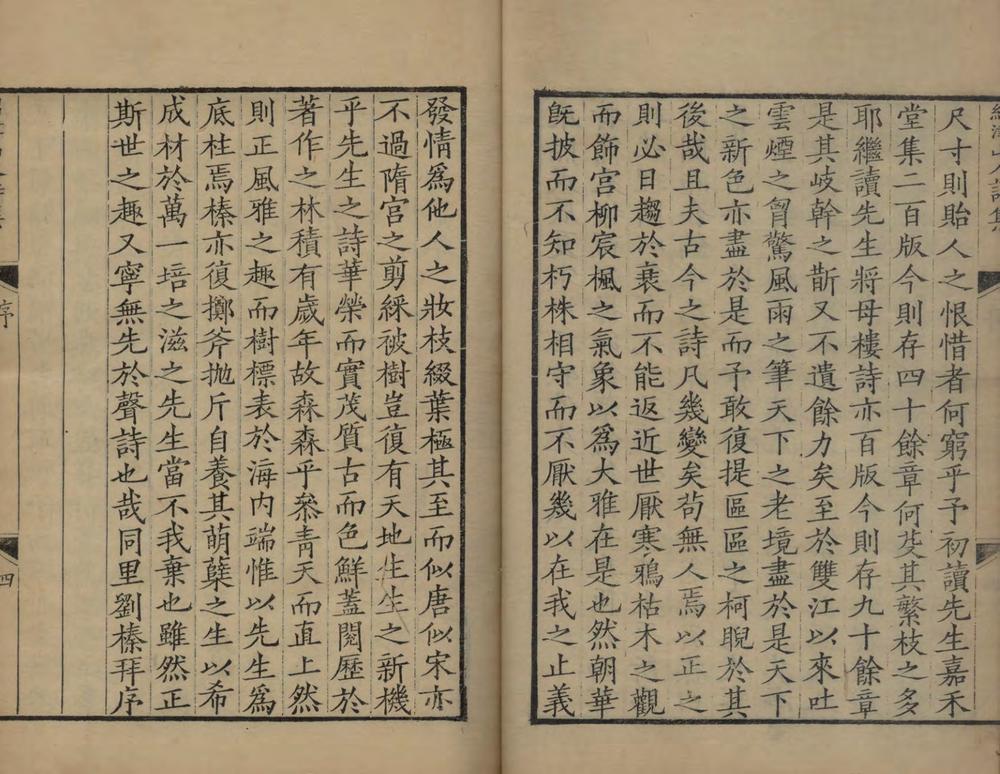 尺寸則貽人之恨惜者何窮乎予初讀先生嘉禾
堂集二百版今則存四十餘章何芟其繁枝之多
耶繼讀先生將母樓詩亦百版今則存九十餘章
是其歧幹之斮又不遺餘力矣至於雙江以來吐
雲煙之胷驚風雨之筆天下之老境盡於是天下
之新色亦盡於是而予敢復提區區之柯睨於其
後哉且夫古今之詩凡幾變矣茍無人焉以正之
則必日趨於衰而不能返近世厭寒鴉枯木之觀
而飾宮柳宸楓之氣象以爲大雅在是也然朝華
旣披而不知朽株相守而不厭幾以在我之止義
發情爲他人之妝枝綴葉極其至而似唐似宋亦
不過隋宮之剪綵被樹豈復有天地生生之新機
乎先生之詩華榮而實茂質古而色鮮蓋閱歷於
著作之林積有歲年故森森乎叅青天而直上然
則正風雅之趣而樹標表於海内端惟以先生爲
底柱焉榛亦復擲斧抛斤自養其萌櫱之生以希
成材於萬一培之滋之先生當不我棄也雖然正
斯世之趣又寧無先於聲詩也哉同里劉榛拜序
序
四